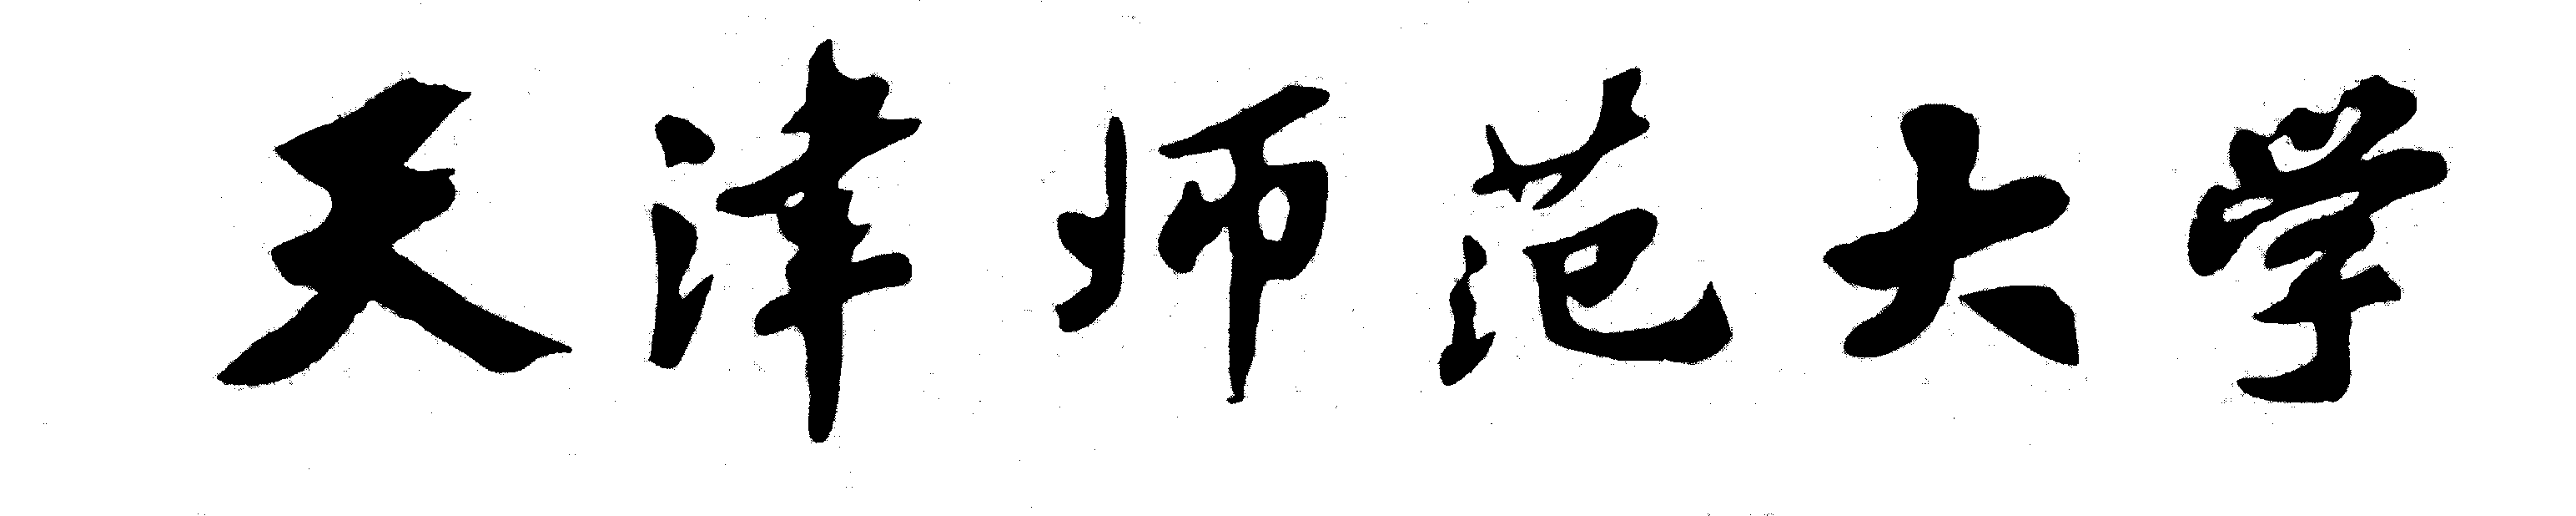 天津师范大学